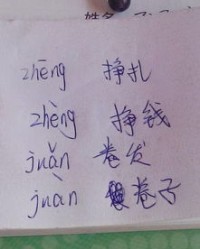 zhēng 挣扎
zhèng 挣钱
juǎn 卷发
juàn 卷子